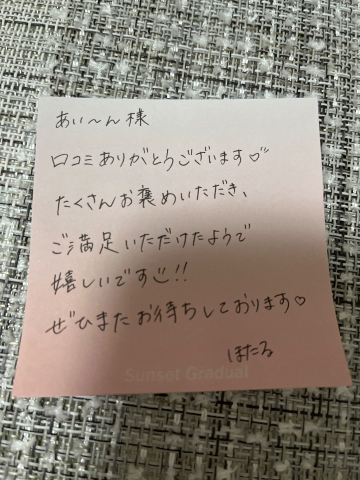 あい〜ん様
口コミありがとうございます♡
たくさんお褒めいただき、
ご満足いただけたようで
嬉しいです!!
ぜひまたお待ちしております♡
ほたる
Sunset Gradual